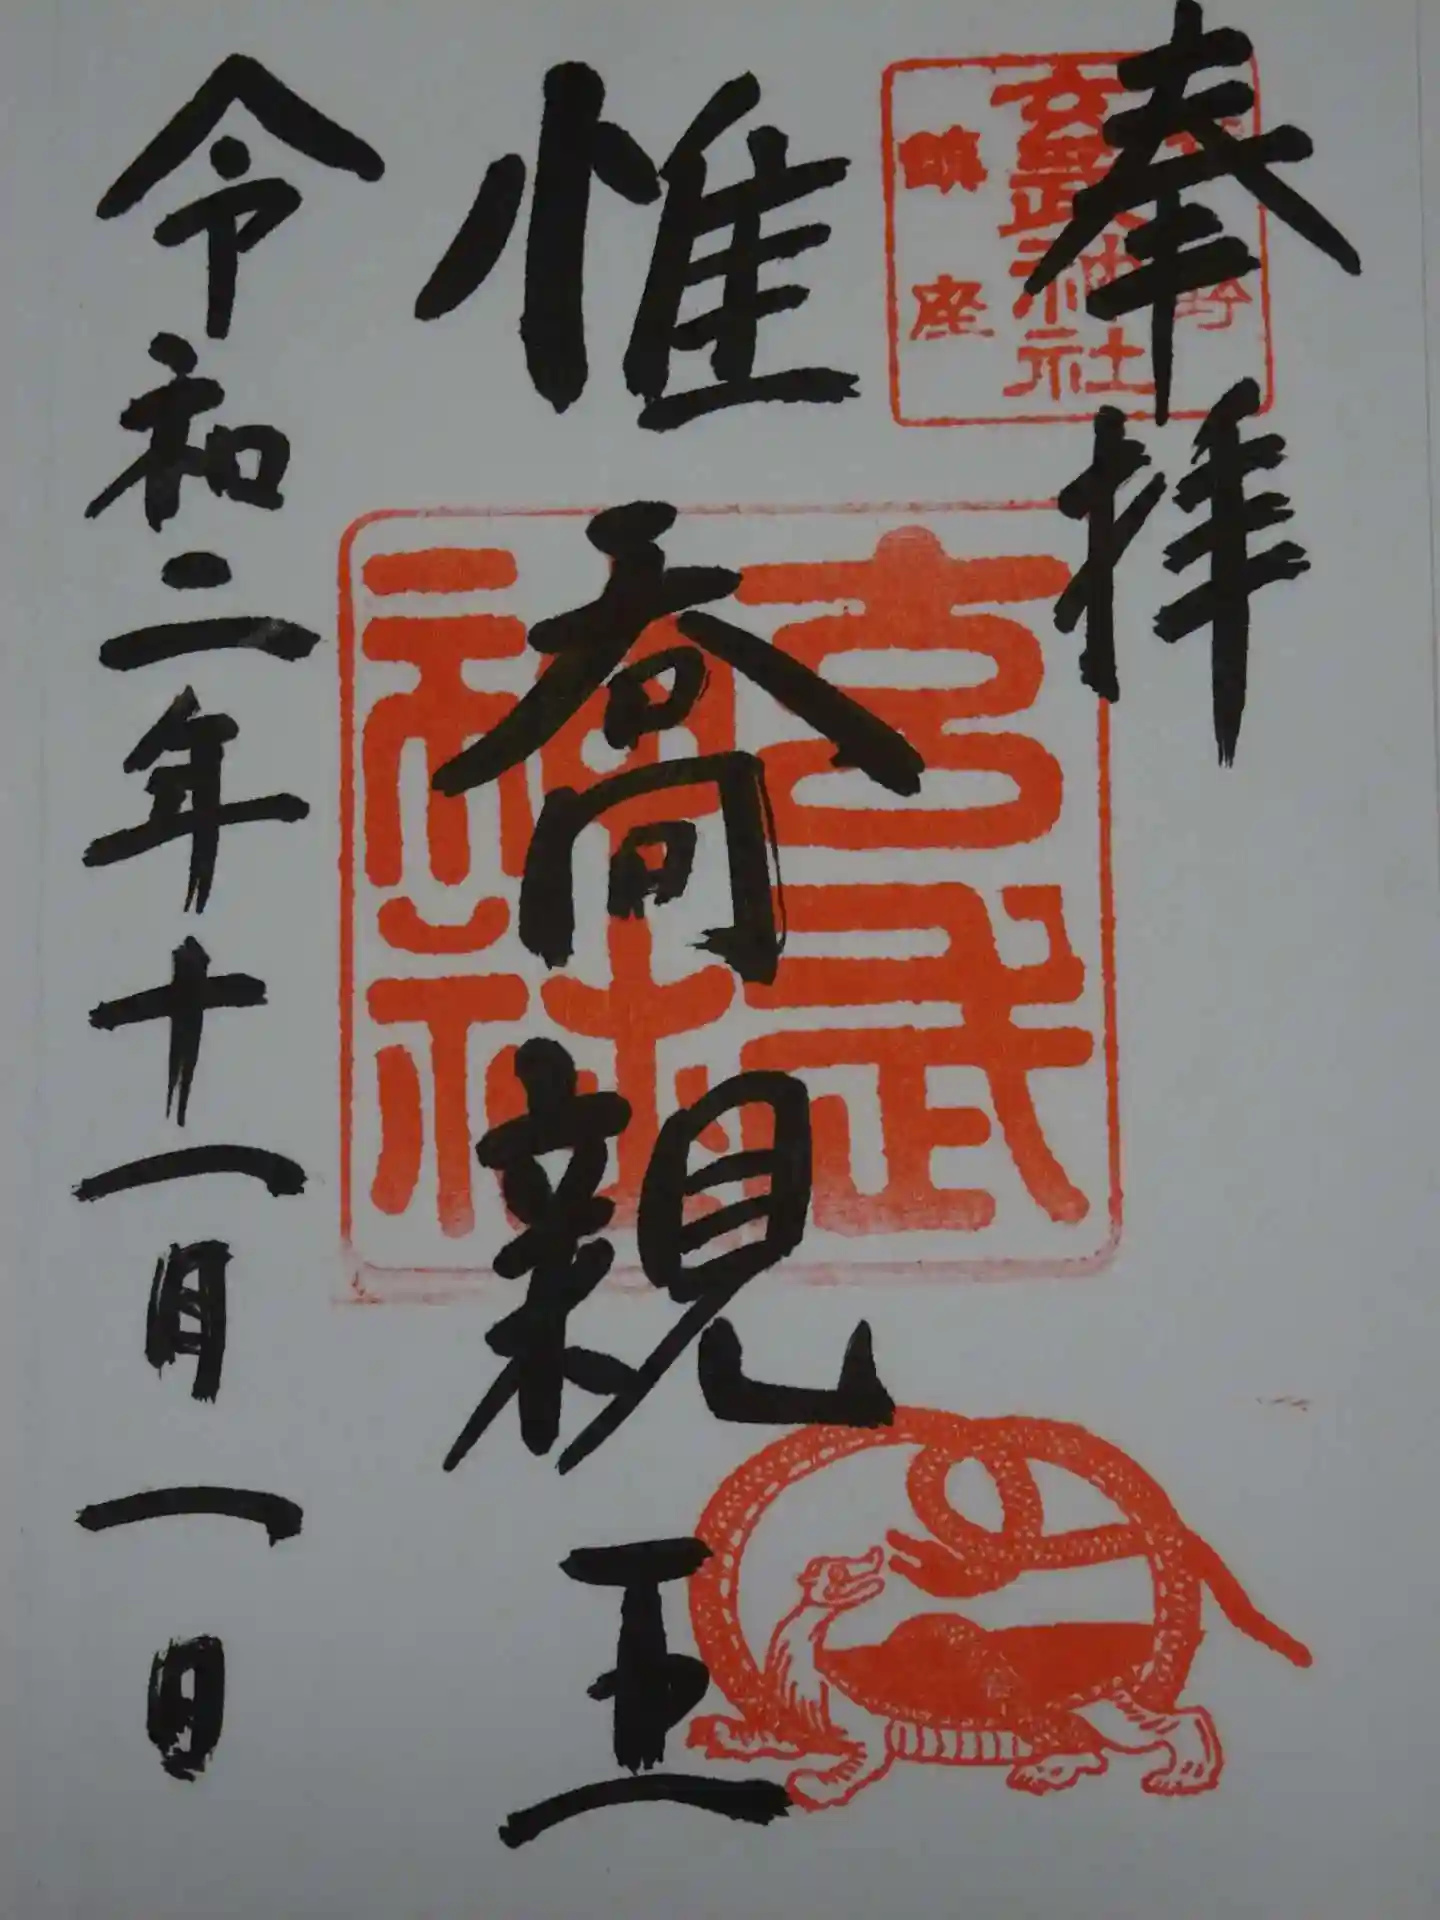 奉拝
玄武神社
鎮座
惟喬親王
玄武神社
令和二年十一月一日